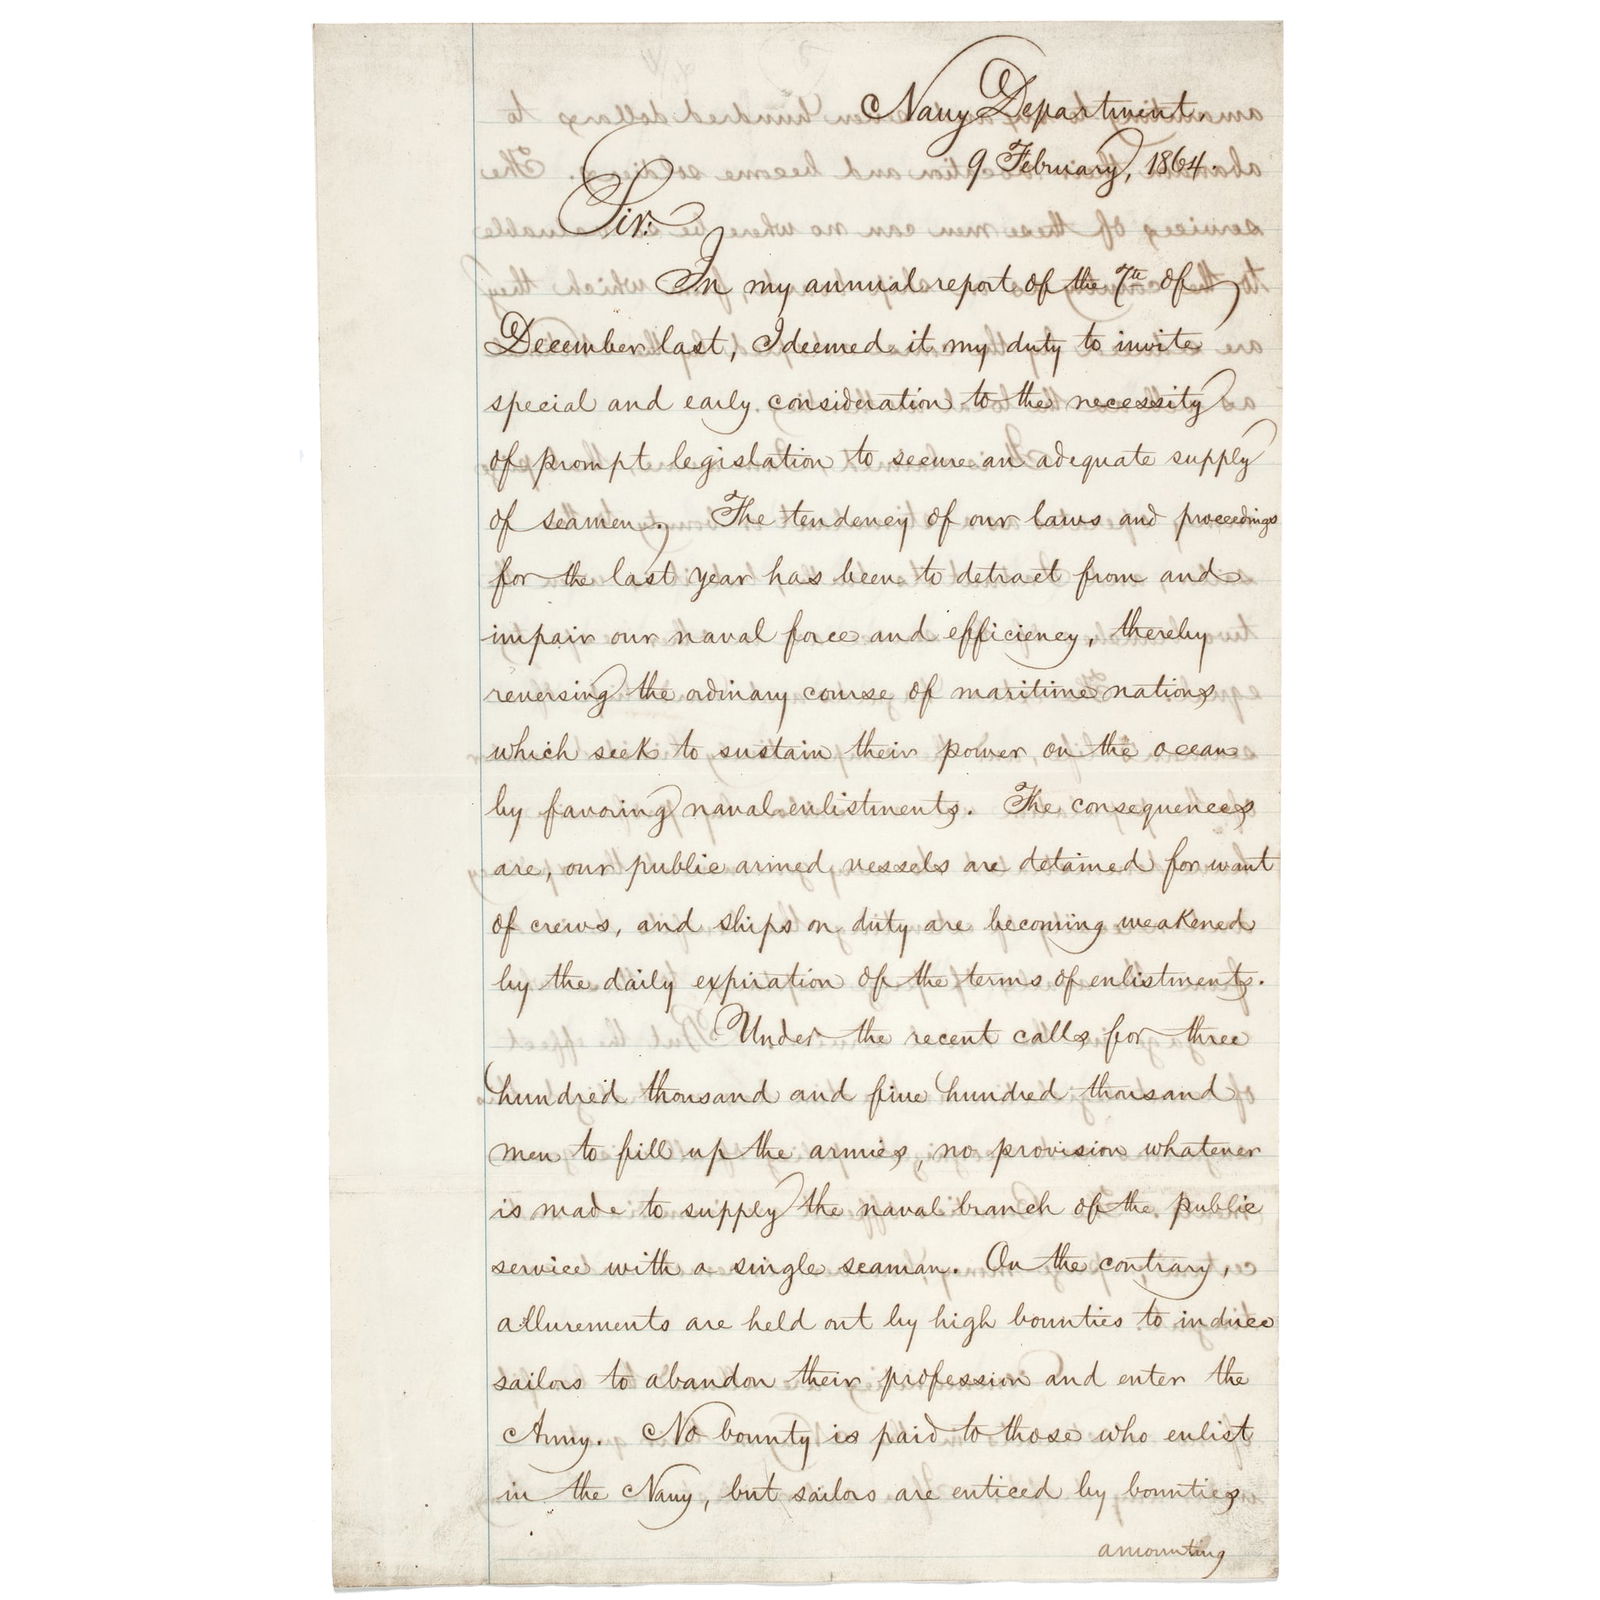 Navy Department.
9 February, 1864.
Sir:
In my annual report of the 7th of
December last, I deemed it my duty to invite
special and early consideration to the necessity
of prompt legislation to secure an adequate supply
of seamen. The tendency of our laws and proceedings
for the last year has been to detract from and
impair our naval force and efficiency, thereby
reversing the ordinary course of maritime nations
which seek to sustain their power on the ocean
by favoring naval enlistments. The consequences
are, our public armed vessels are detained for want
of crews, and ships on duty are becoming weakened
by the daily expiration of the terms of enlistments.
Under the recent calls for three
hundred thousand and five hundred thousand
men to fill up the armies, no provision whatever
is made to supply the naval branch of the public
service with a single seaman. On the contrary,
allurements are held out by high bounties to induce
sailors to abandon their profession and enter the
Army. No bounty is paid to those who enlist
in the Navy, but sailors are enticed by bounties
amounting